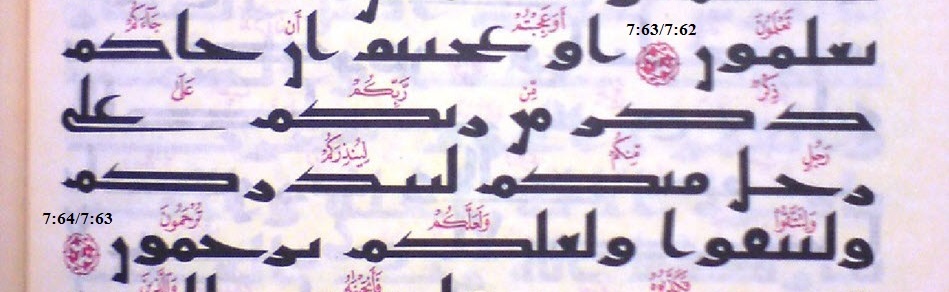 تَعْلَمُونَ 7:63/7:62 أَوَعَجِبْتُمْ أَن جَآءَكُمْ
تعلمون اوعجبتم ان جاكم
ذِكْرٌ مِّن رَّبِّكُمْ عَلَىٰ
ذكر من ربكم على
رَجُلٍ مِّنكُمْ لِيُنذِرَكُمْ
رجل منكم لينذركم
وَلِتَتَّقُوا۟ وَلَعَلَّكُمْ تُرْحَمُونَ 7:64/7:63
ولتتقوا ولعلكم ترحمون